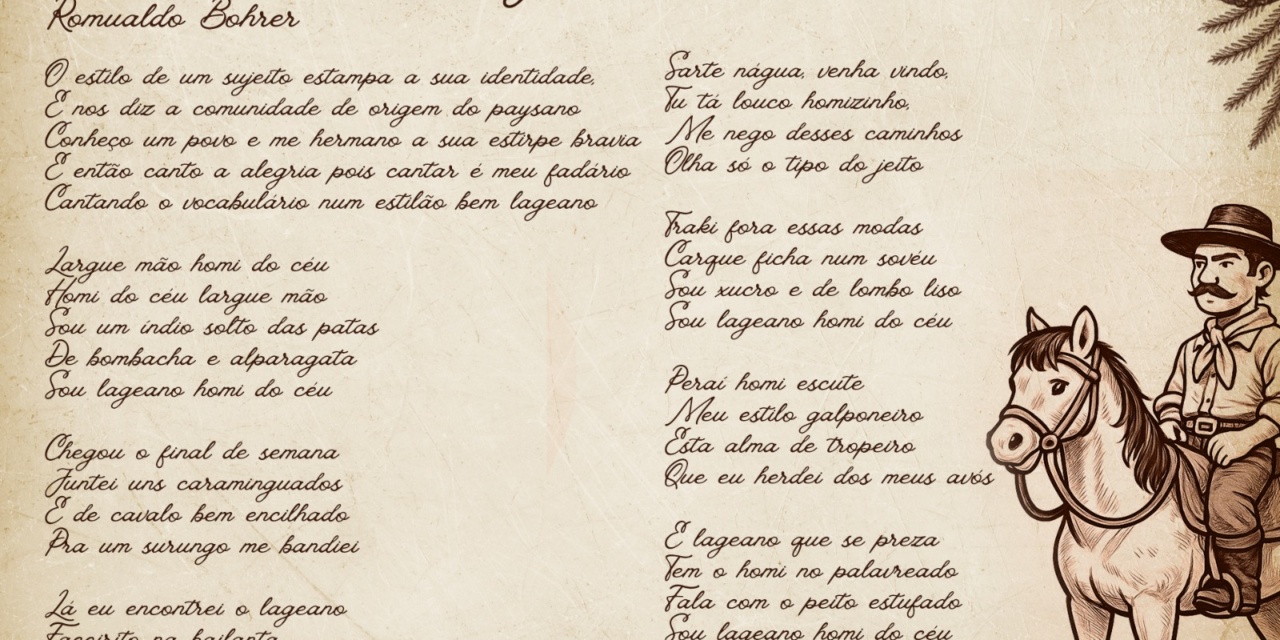 Romualdo Bohrer
O estilo de um sujeito estampa a sua identidade,
E nos diz a comunidade de origem do paysano
Conheço um povo e me hermano a sua estirpe bravia
E então canto a alegria pois cantar é meu fadário
Cantando o vocabulário num estilão bem lageano
Largue mão homi do céu
Homi do céu largue mão
Sou um índio solto das patas
De bombacha e alparagata
Sou lageano homi do céu
Chegou o final de semana
Juntei uns caraminguados
E de cavalo bem encilhado
Pra um surungo me bandiei
Lá eu encontrei o lageano
Faceirito na bailanta
Sarte nágua, venha vindo,
Tu tá louco homizinho,
Me nego desses caminhos
Olha só o tipo do jeito
Traki fora essas modas
Carque ficha num sovéu
Sou xucro e de lombo liso
Sou lageano homi do céu
Peraí homi escute
Meu estilo galponeiro
Esta alma de tropeiro
Que eu herdei dos meus avós
E lageano que se preza
Tem o homi no palavreado
Fala com o peito estufado
Sou lageano homi do céu